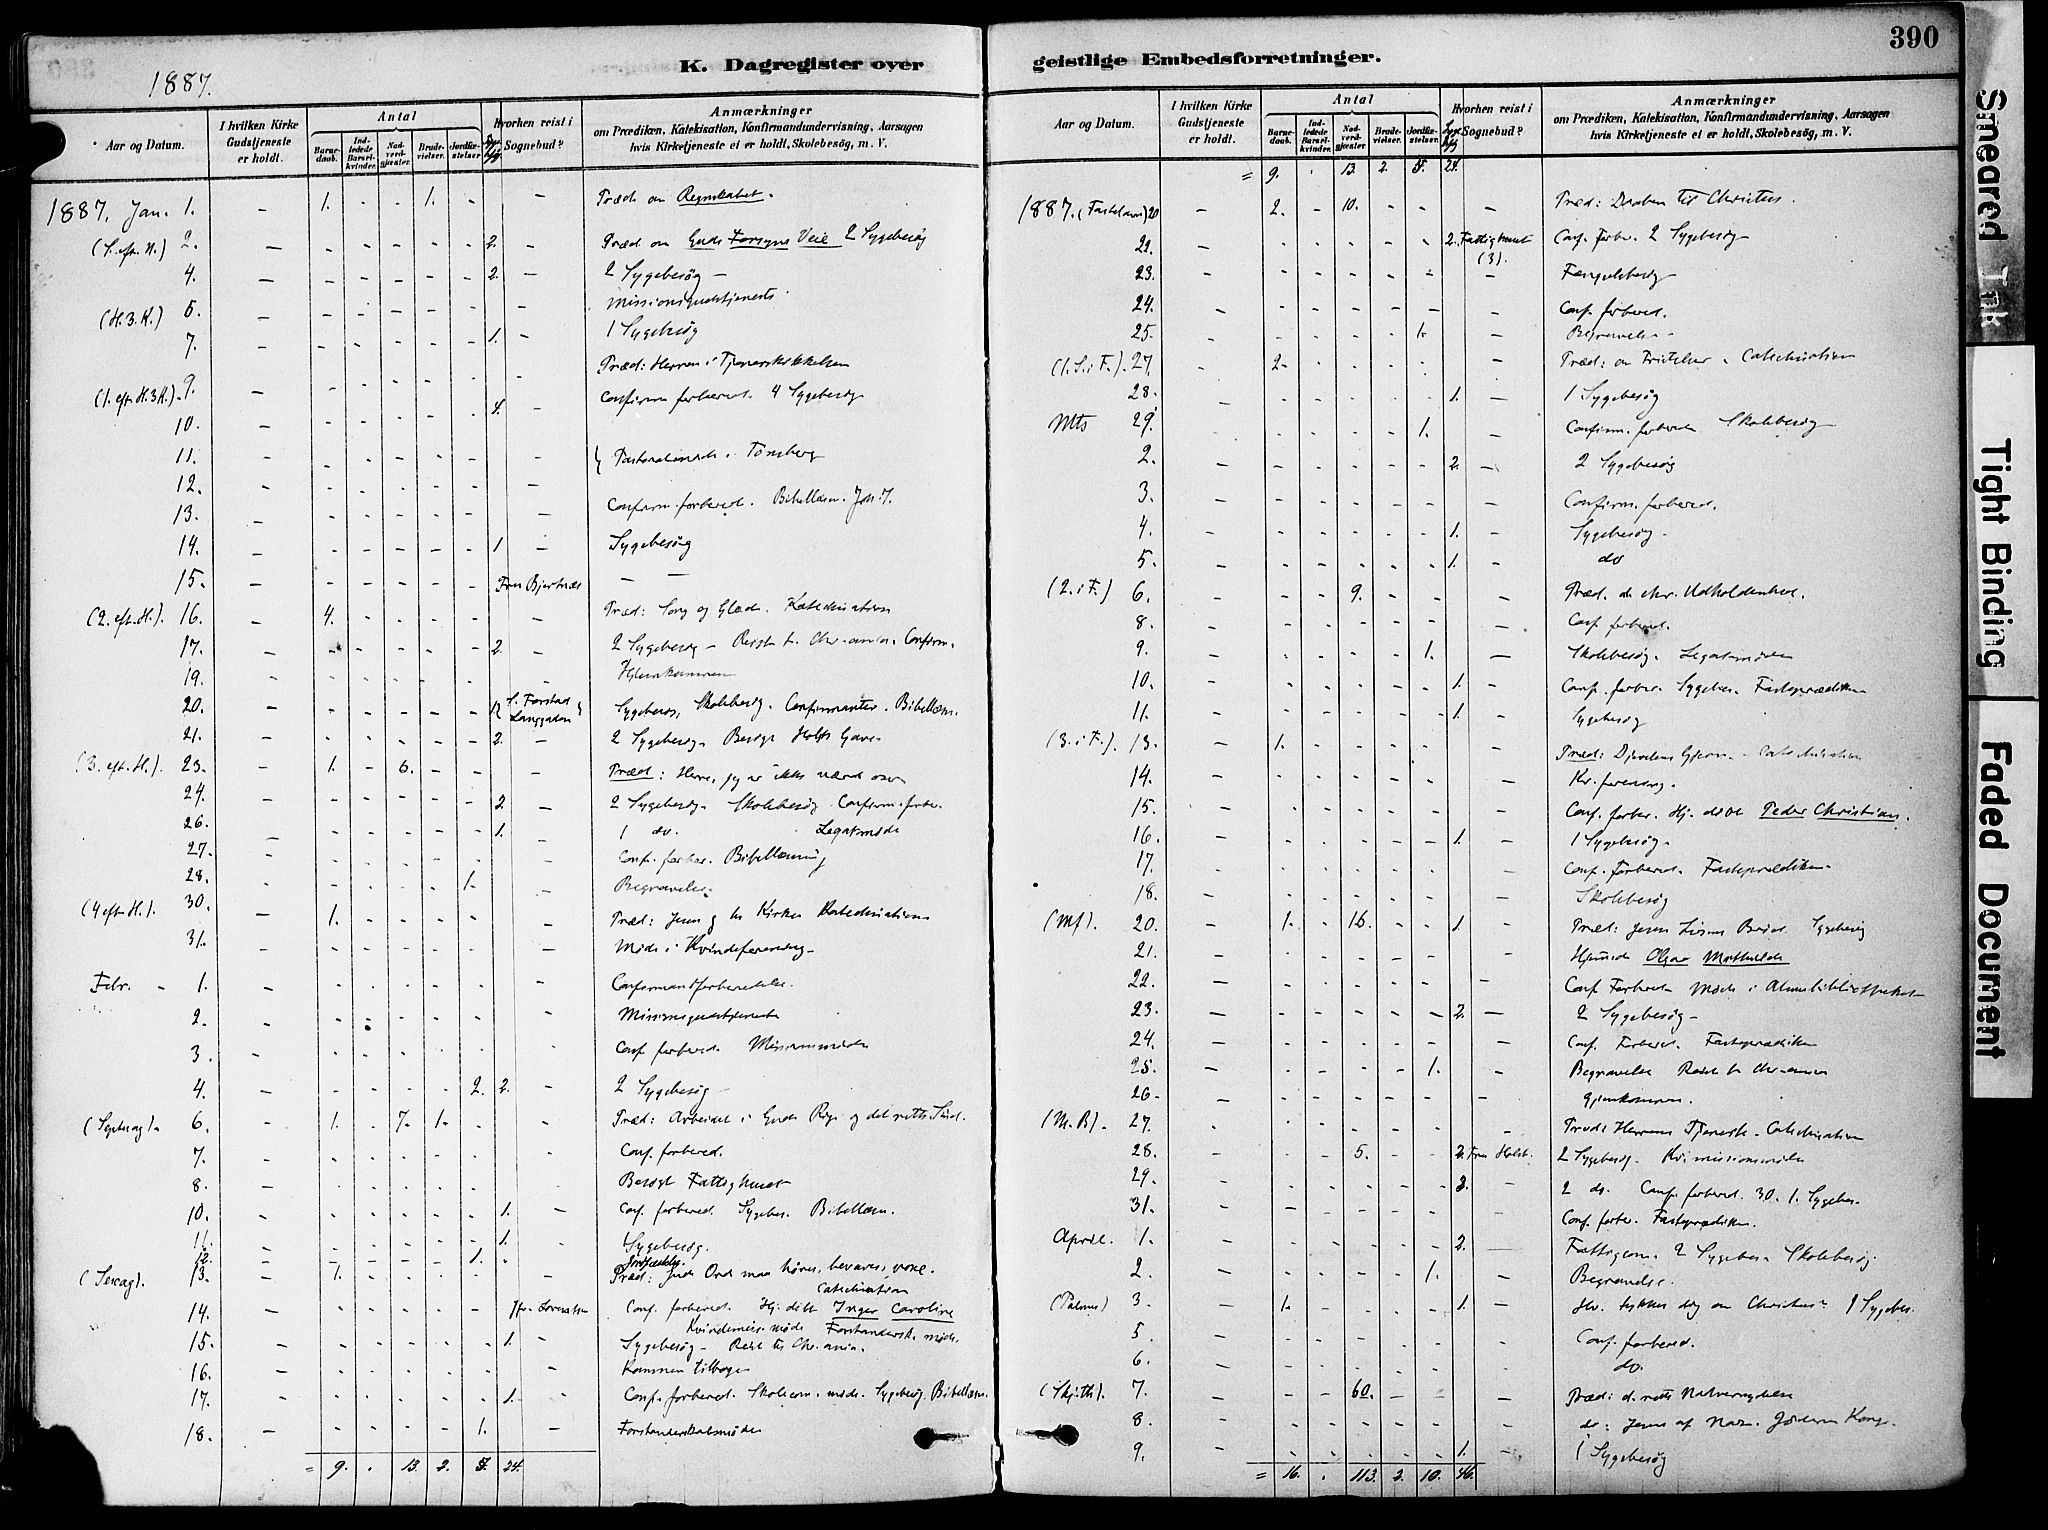 390
K. Dagregister over geistlige Embedsforretninger.
1887.
Aar og Datum.
I hvilken Kirke Gudstjeneste er holdt.
Antal
Barne-daab.
Ind-ledede Barsel-kvinder.
Nad-verd-gjester.
Brude-vielser.
Jordfæ-stelser.
Hvorhen reist i Sognebud?
Anmærkninger
om Prædiken, Katekisation, Konfirmandundervisning, Aarsagen
hvis Kirketjeneste ei er holdt, Skolebesög, m. V.
1887. Jan. 1. - 1. - - 1. - - Præd. om Regnskabet.
(S. eft. N.) 2. - - - - - - 2. - Præd om Guds Forsyns Veie 2 Sygebesög
4. - - - - - - 2. - 2 Sygebesög -
(H. 3. K.) 6. - - - - - - - Missionsgudstjeneste
7. - - - - - - 1. - 1 Sygebesög
(1. eft. H. 3 K.). 9. - Præd: Herren i Tjenerskikkelsen
10. - - - - - - 4. - Confirm forbered. 4 Sygebesög
11. - - - - - -
12. - - - - - - - i Tönsberg
13. - - - - - - - Confirm. forbered. Bibellæsn.
14. - - - - - - 1 - Sygebesög
15. - - - - - - Fru Bjertnæs - -
(2. eft. H.). 16. - 4. - - - - - Præd: Sorg og Glæde. Katechisation
17. - - - - - - 2. - 2 Sygebesög - Reist t. Chr.ania. Confirm.
19. - - - - - - - Hjemkommen
20. - - - - - - S. Forstad & Langgaden Sygebesög, Skolebesög. Confirmanter. Bibellæsn.
21. - - - - - - 2. - 2 Sygebesög. Besögt Holts Gave
(3. eft. H.). 23. - 1. - 6. - - - Præd: Herre, jeg er ikke værd
24. - - - - - - 2. - 2 Sygebesög. Skolebesög Confirm. forbe.
26. - - - - - - 1. - 1 do. Legatmöde
27. - - - - - - - Conf. forber. Bibellæsning
28. - - - - - 1. - Begravelse
(4 eft H.). 30. - 1. - - - - - Præd: Jesus og hs Kirke Katechisation
31. - - - - - - - Möde i Kvindeforening -
Febr. - 1. - - - - - - - Confirmantforberedelse.
2. - - - - - - - Missionsgudstjeneste
3. - - - - - - - Conf. forbered. Missionsmöde
4. - - - - - 2. 2. - 2 Sygebesög -
(Septuag). 6. - 1. - 7. 1. - - Præd: Arbeidet i Guds Rige og det rette Sind.
7. - - - - - - - Conf. forbered.
8. - - - - - - - Besögt Fattighuset
10. - - - - - - 1. - Conf. forbered. Sygebes. Bibellæsn.
11. - - - - - - 1. - Sygebesög.
12. - - - - - 1. - Jordfæstelse
(Sexag). 13. - 1. - - - - - Præd: Guds Ord maa höres, bevares, voxe.
Catechisation
14. - - - - - - Conf. forbered. Hj. döbt Inger Caroline
Kvindemiss. möde Forstandersk. möde.
15. - - - - - - 1. - Sygebesög - Reist til Chr.ania.
16. - - - - - - - Kommen tilbage
17. - - - - - - 1. - Conf. forbered. Skolecom. möde. Sygebesög. Bibellæsn.
18. - - - - - 1. - Forstanderskabsmöde
= 9. . 13. 2. 5. 24.
Aar og Datum.
I hvilken Kirke Gudstjeneste er holdt.
Antal
Barne-daab.
Ind-ledede Barsel-kvinder.
Nad-verd-gjester.
Brude-vielser.
Jordfæ-stelser.
Hvorhen reist i Sognebud?
Anmærkninger
om Prædiken, Katekisation, Konfirmandundervisning, Aarsagen
hvis Kirketjeneste ei er holdt, Skolebesög, m. V.
= 9. . 13. 2. 5. 24.
1887. (Fastelavn) 20 - 2. - 10. - - - Præd: Daaben til Christus.
22. - - - - - - 2. Fattighuset (3). Conf. forbr. 2 Sygebesög
23. - - - - - - - Fængselsbesög
24. - - - - - - - Conf. forbered.
25. - - - - - 1. - Begravelse
(1. S. i F.). 27. - 2. - Præd: om Fristelser. Catechisation
28. - - - - - - 1. - 1 Sygebesög
Mts 29. - - - - - 1. - Confirm. forbered. Skolebesög
2. - - - - - - 2. - 2 Sygebesög
3. - - - - - - - Confirm. forbered.
4. - - - - - - 1. - Sygebesög -
5. - - - - - - 1. - do
(2. i F.) 6. - - - 9. - - - Præd. d. chr. Udholdenhed.
8. - - - - - - - Conf. forbered.
9. - - - - - 1. - Skolebesög. Legatmöde
10. - - - - - - 1. - Conf. forber. Sygebes. Fasteprædiken
11. - - - - - - 1. - Sygebesög
(3. i F.). 13. - 1. - - - - - Præd: Djævelens Gjern. - Catechisation
14. - - - - - - - Kv. forening.
15. - - - - - - - Conf. forber. Hj. döbt Peder Christian.
16. - - - - - - 1. - 1 Sygebesög.
17. - - - - - - - Conf. forbered. Fasteprædiken
18. - - - - - - - Skolebesög
(Mf). 20. - 1. - 16. - - 1. - Præd: Jesus Livsens Bröd. Sygebesög
21. - - - - - - - Hjemmed. Olga Mathilde
22. - - - - - - - Conf. Forbered. Möde i Almuebibliotheket
23. - - - - - - 2. - 2 Sygebesög -
24. - - - - - - - Conf. Forbered. Fasteprædiken
25. - - - - - 1. - Begravelse Reist t. Chr.ania
26. - - - - - - - Gjenkommen.
(M. B). 27. - - - - - - - Præd: Herrens Tjenerk. Catechisation
28. - - - 5. - - 2. Fru Holst. 2 Sygebesög. Kv.missionsmöde
29. - - - - - - 3. - 2 do. Conf. forbered. 30. 1. Sygebes.
31. - - - - - - - Conf. forber. Fasteprædiken.
April. 1. - - - - - - 2. - Fattigcom. 2 Sygebes. Skolebesög
2. - - - - - 1. - Begravelse.
(Palmes) 3. - 1. - - - - 1. - Hv. tykkes dig om Christus? 1 Sygebes.
5. - - - - - - - Conf. forbered.
6. - - - - - - - do.
(Skjth). 7. - - - 60. - - - Præd: d. rette Nadvernydelse
8. - - - - - - - do: Jesus af Naz. Jödernes Konge.
9. - - - - - - 1. - 1 Sygebesög
= 16. . 113. 2. 10. 46.
Smeared Ink
Tight Binding
Faded Document